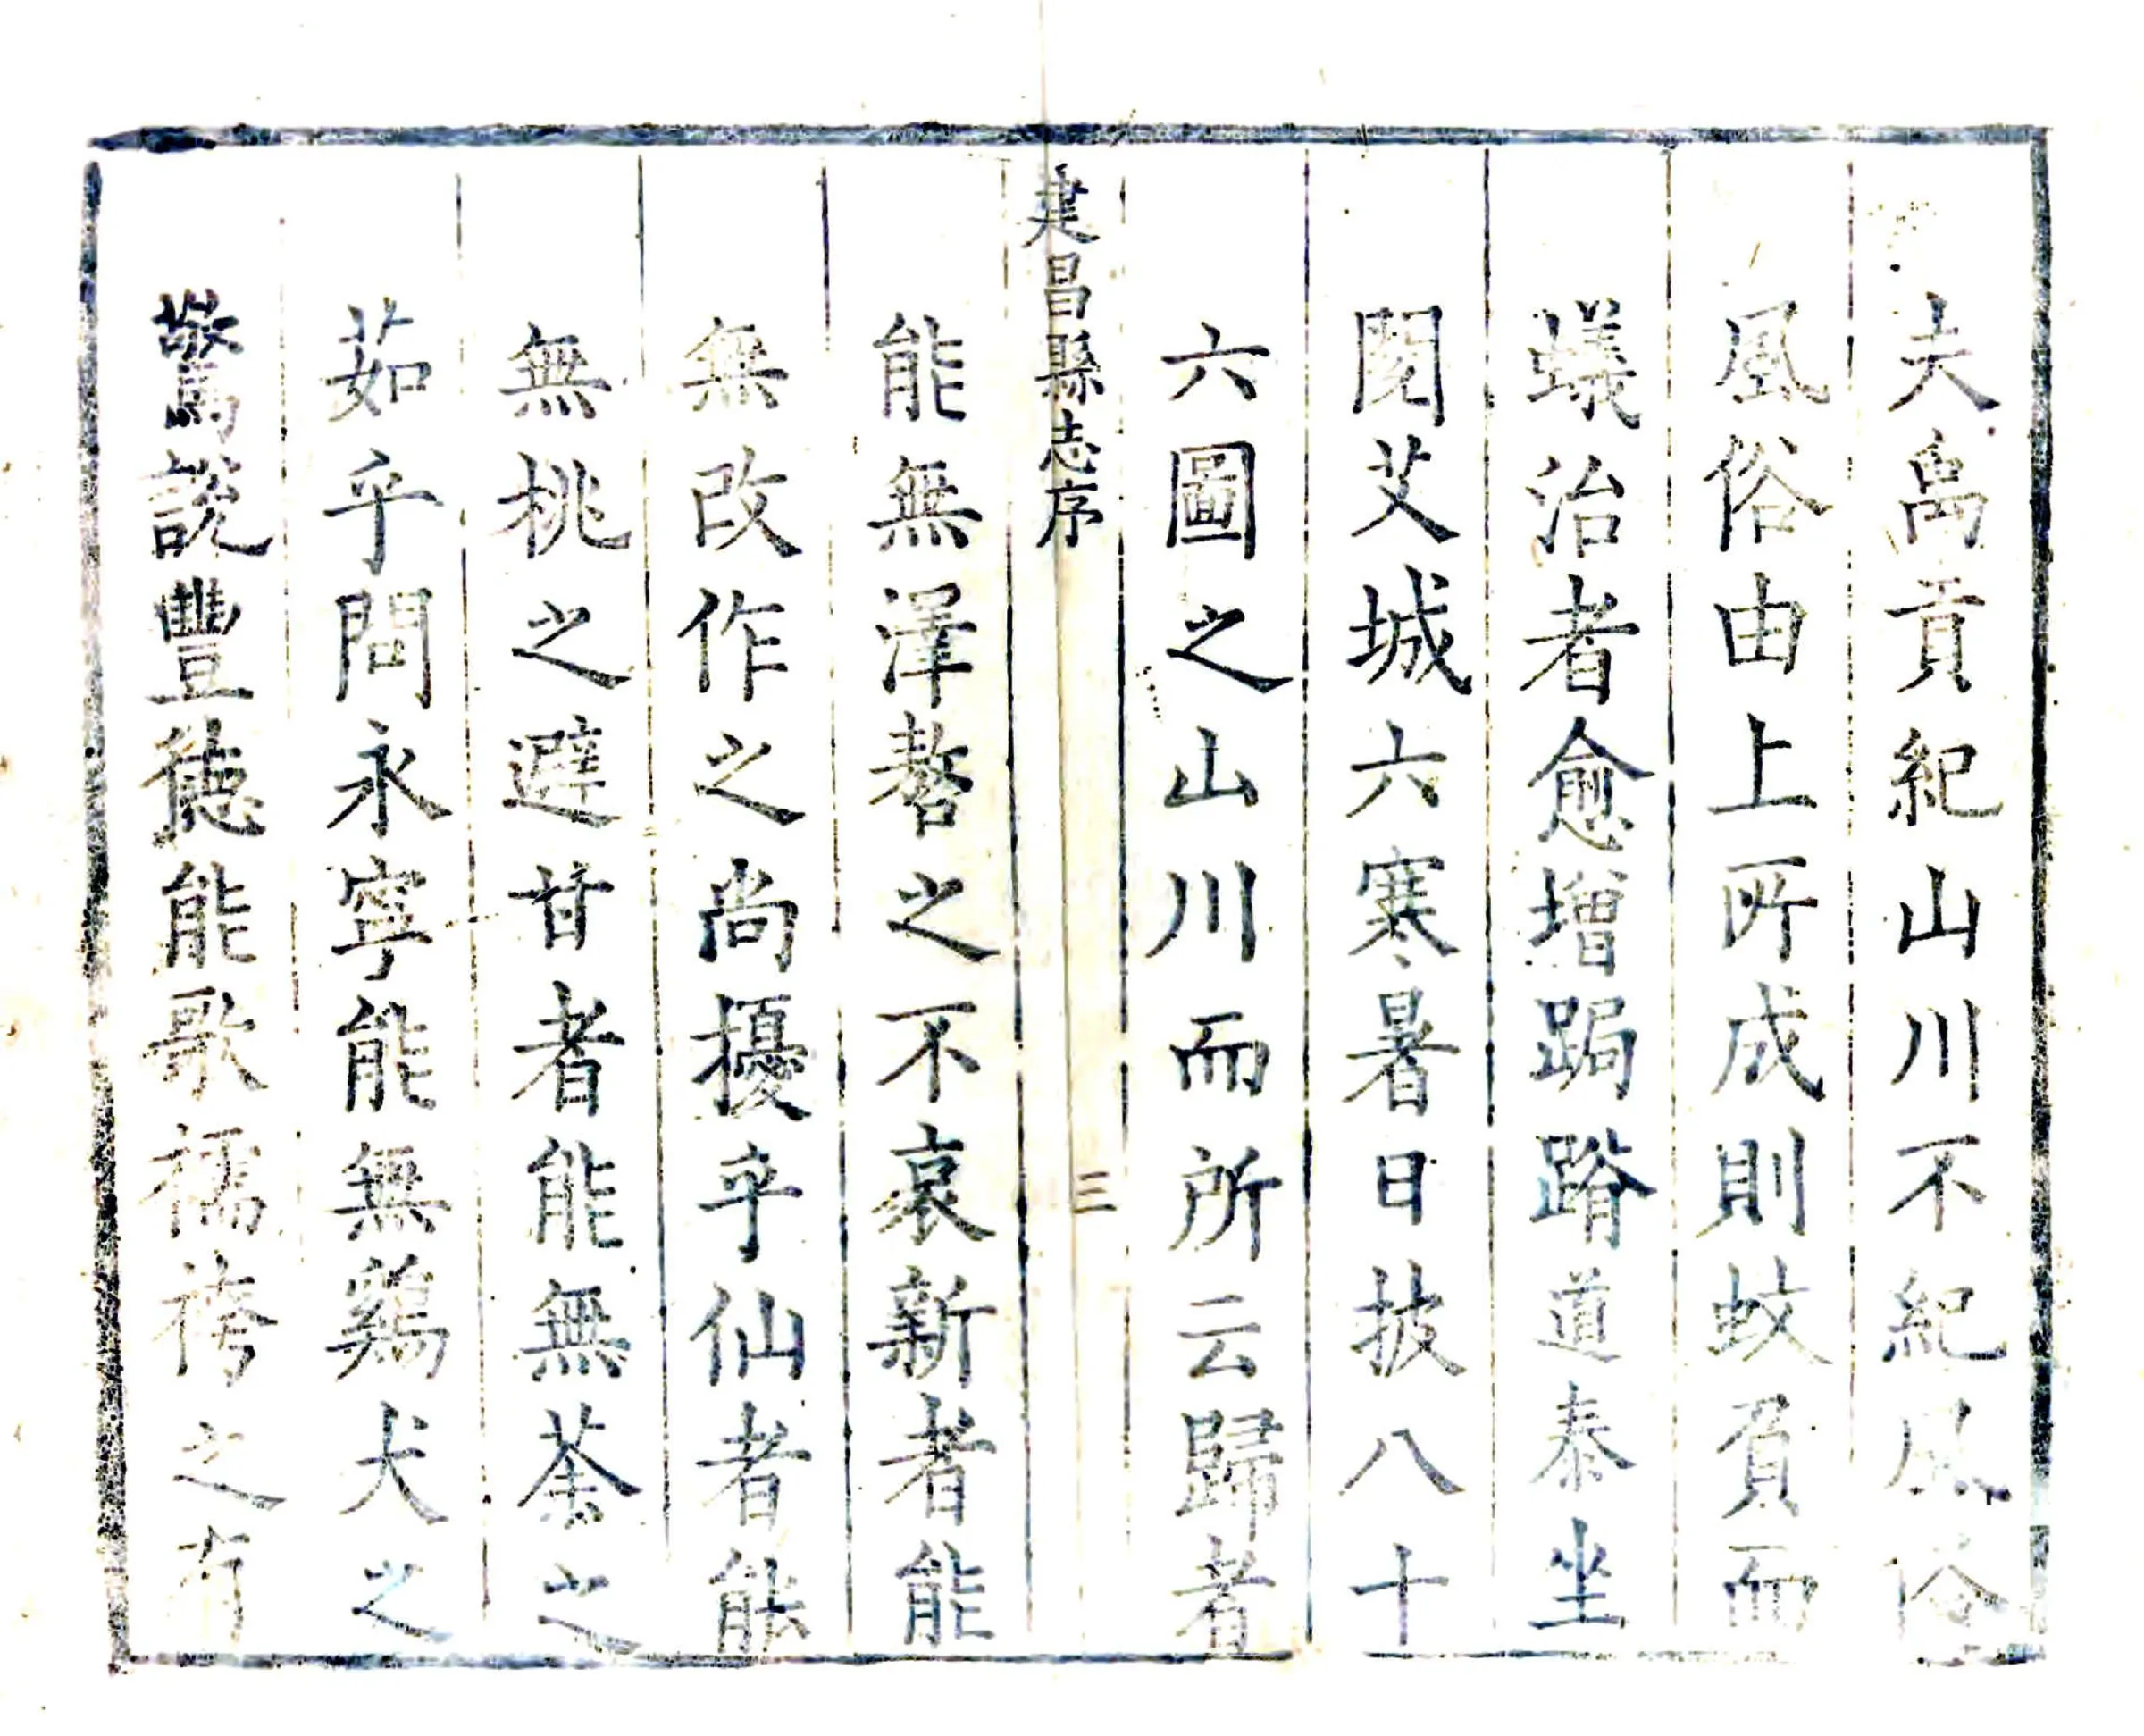 夫禹貢紀山川不紀風俗
風俗由上所成則蚊負而
蟻治者愈增跼蹐道泰坐
閱艾城六寒暑日披八十
六圖之山川而所云歸者
建昌縣志序
三
能無澤嗸之不哀新者能
無改作之尚擾乎仙者能
無桃之避甘者能無荼之
茹乎問永寧能無鷄犬之
驚說豐徳能歌襦袴之有